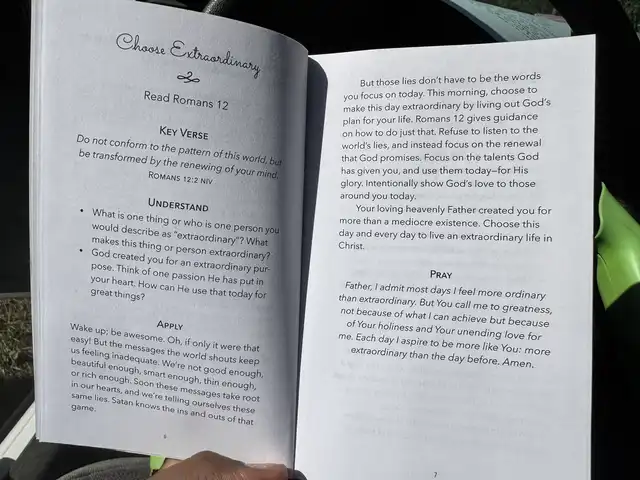 Choose Extraordinary
Read Romans 12
Key Verse
Do not conform to the pattern of this world, but
be transformed by the renewing of your mind.
Romans 12:2 NIV
Understand
• What is one thing or who is one person you
would describe as "extraordinary"? What
makes this thing or person extraordinary?
• God created you for an extraordinary pur-
pose. Think of one passion He has put in
your heart. How can He use that today for
great things?
Apply
Wake up; be awesome. Oh, if only it were that
easy! But the messages the world shouts keep
us feeling inadequate. We're not good enough,
beautiful enough, smart enough, thin enough,
or rich enough. Soon these messages take root
in our hearts, and we're telling ourselves these
same lies. Satan knows the ins and outs of that
game.
6
But those lies don't have to be the words
you focus on today. This morning, choose to
make this day extraordinary by living out God's
plan for your life. Romans 12 gives guidance
on how to do just that. Refuse to listen to the
world's lies, and instead focus on the renewal
that God promises. Focus on the talents God
has given you, and use them today—for His
glory. Intentionally show God's love to those
around you today.
Your loving heavenly Father created you for
more than a mediocre existence. Choose this
day and every day to live an extraordinary life in
Christ.
Pray
Father, I admit most days I feel more ordinary
than extraordinary. But You call me to greatness,
not because of what I can achieve but because
of Your holiness and Your unending love for
me. Each day I aspire to be more like You: more
extraordinary than the day before. Amen.
7